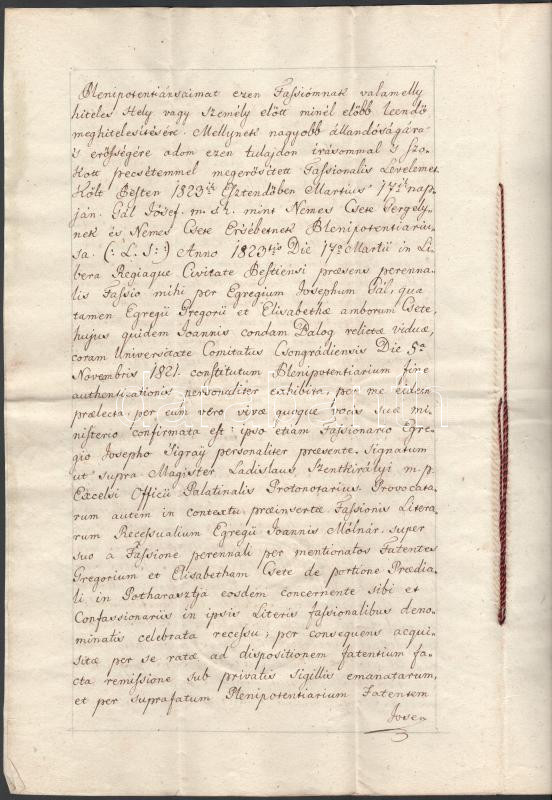 Plenipotentiársaimat ezen Fassiómnak valamelly
hiteles Hely vagy személy előtt minél előbb leendő
meghitelesítésére. Mellynek nagyobb állandóságára
's erősségére adom ezen tulajdon írásommal 's szo-
kott pecsétemmel megerősített Fassionalis Levelemet.
Költ Pesten 1823ik Esztendőben Martius 17ik nap-
ján. Gál Jósef. m. s. k. mint Nemes Csete Gergely-
nek és Nemes Csete Ersébetnek Plenipotentiariu-
sa. (: L. S: ) Anno 1823tio Die 17a Martii in Li-
bera Regiaque Civitate Pestiensi praesens perenna-
lis Fassio mihi per Egregium Josephum Gál, qua
tamen Egregii Gregorii et Elisabethae amborum Csete,
hujus quidem Joannis condam Balog relictae viduae,
coram Universitate Comitatus Csongrádiensis Die 5a
Novembris 1821. constitutum Plenipotentiarium fine
authenticationis personaliter exhibita, per me eidem
praelecta, per eum vero vivae quoque vocis suae mi-
nisterio confirmata est: ipso etiam Fassionario Egre-
gio Josepho Sigray personaliter praesente. Signatum
ut supra. Magister Ladislaus Szentkirályi m. p.
Excelsi Officii Palatinalis Protonotarius. Provocata-
rum autem in contextu praeinsertae Fassionis Litera-
rum Recessualium Egregii Joannis Mólnár super
suo à Fassione perennali per mentionatos Fatentes
Gregorium et Elisabetham Csete de portione Praedia-
li in Potharasztja eosdem concernente sibi et
Confassionariis in ipsis Literis fassionalibus deno-
minatis celebrata recessu; per consequens acqui-
sitae per se ratae ad dispositionem fatentium fa-
cta remissione sub privatis sigillis emanatarum,
et per suprafatum Plenipotentiarium Fatentem
Jose-